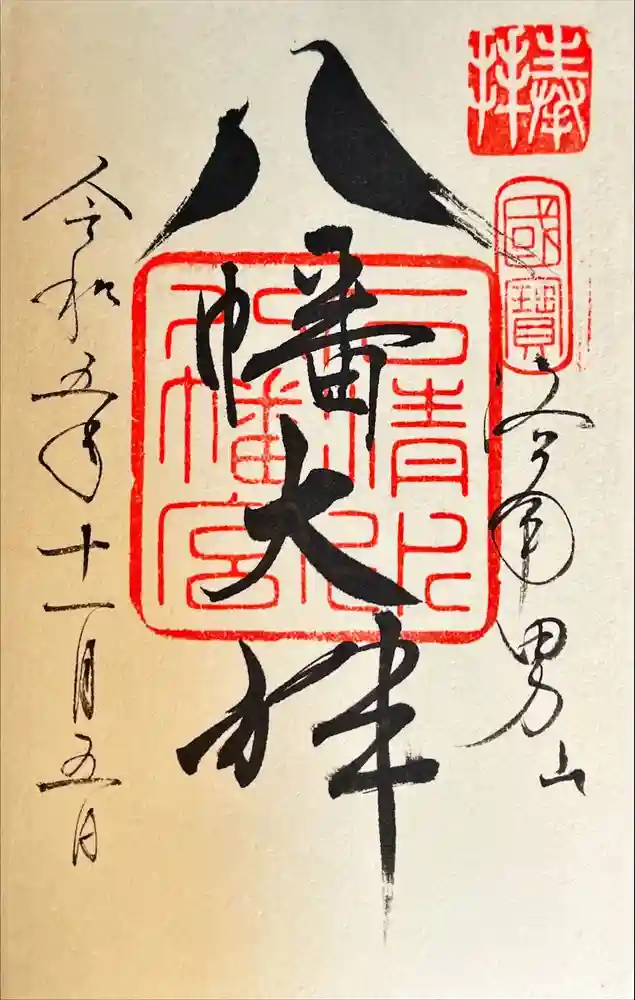 奉拝
國寶
洛南男山
八幡大神
石清水
八幡宮
令和五年十一月五日